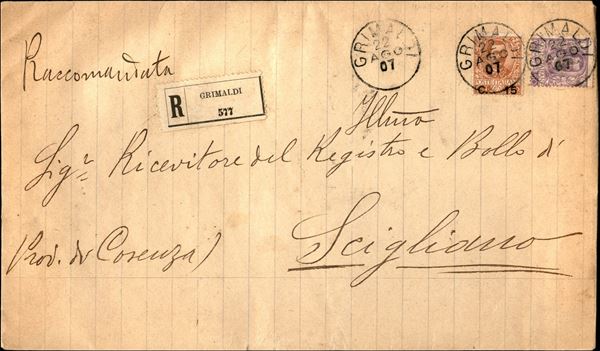 Raccomandata
R GRIMALDI
577
GRIMALDI
22
AGO
07
GRIMALDI
22
AGO
07
GRIMALDI
22
AGO
07
C. 15
Illmo
Sigr Ricevitore del Registro e Bollo di
Scigliano
Prov. di Cosenza)